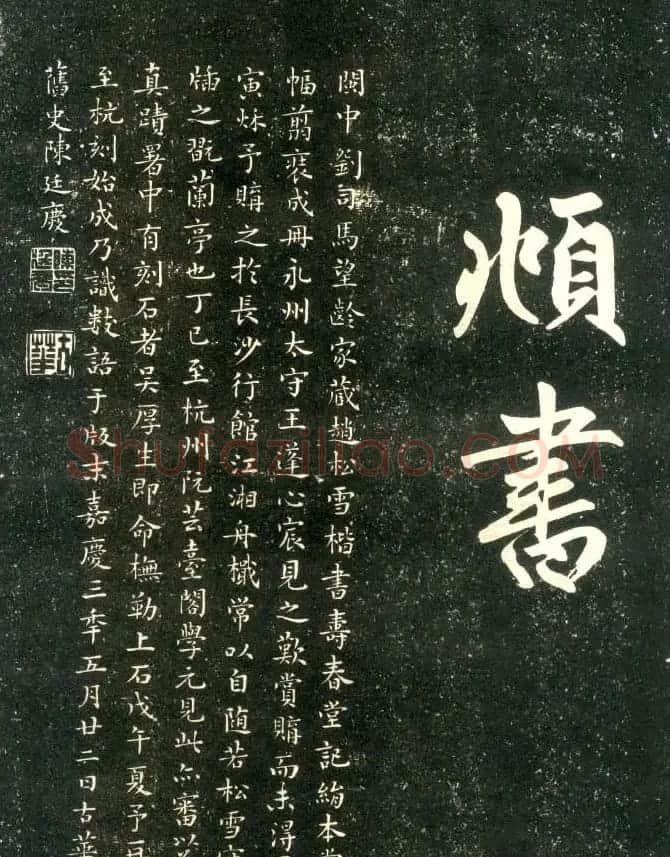 頫書
閩中劉司馬望齡家藏趙松雪楷書壽春堂記絹本
幅翦裒成冊永州太守王蓬心宸見之歎賞購而未得
寅秌予購之於長沙行館江湘舟檝常以自随若松雪
之翫蘭亭也丁巳至杭州阮芸臺閣學元見此亦審
真蹟署中有刻石者吴厚生即命橅勒上石戊午夏予
至杭刻始成乃識數語于版末嘉慶三季五月廿二日古華
舊史陳廷慶
Shufaziliao.COM